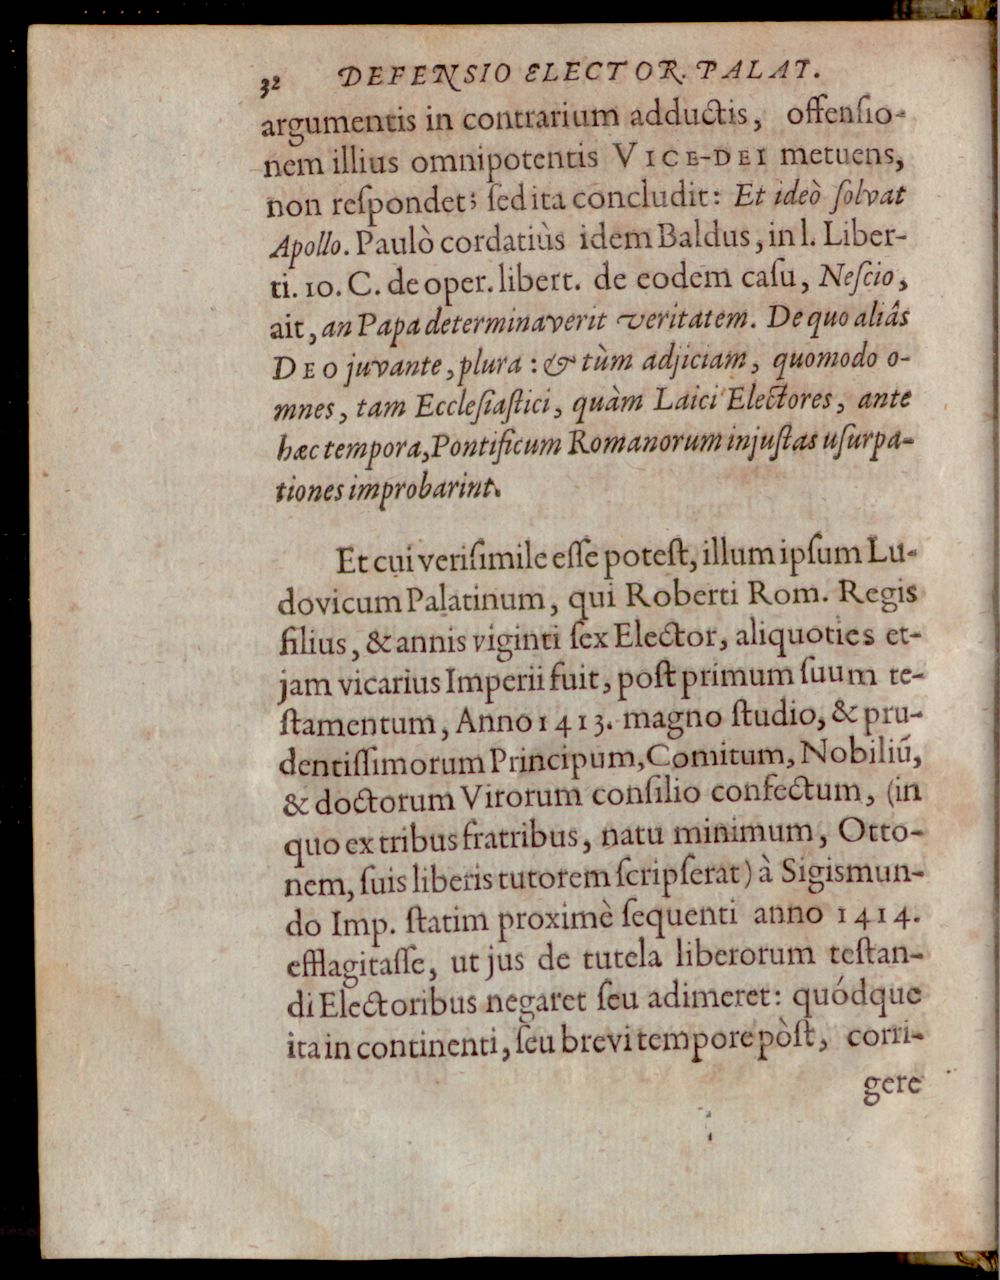 32 DEFENSIO ELECTOR. PALAT.
argumentis in contrarium adductis, offensio-
nem illius omnipotentis VICE-DEI metuens,
non respondet; sed ita concludit: Et ideò solvat
Apollo. Paulò cordatiùs idem Baldus, in l. Liber-
ti. 10. C. de oper. libert. de eodem casu, Nescio,
ait, an Papa determinaverit veritatem. De quo aliâs
DEO juvante, plura: & tùm adjiciam, quomodo o-
mnes, tam Ecclesiastici, quàm Laici Electores, ante
hæc tempora, Pontificum Romanorum injustas usurpa-
tiones improbarint.
Et cui verisimile esse potest, illum ipsum Lu-
dovicum Palatinum, qui Roberti Rom. Regis
filius, & annis viginti sex Elector, aliquoties et-
jam vicarius Imperii fuit, post primum suum te-
stamentum, Anno 1413. magno studio, & pru-
dentissimorum Principum, Comitum, Nobiliū,
& doctorum Virorum consilio confectum, (in
quo ex tribus fratribus, natu minimum, Otto-
nem, suis liberis tutorem scripserat) à Sigismun-
do Imp. statim proximè sequenti anno 1414.
efflagitasse, ut jus de tutela liberorum testan-
di Electoribus negaret seu adimeret: quódque
ita in continenti, seu brevi tempore pòst, corri-
gere